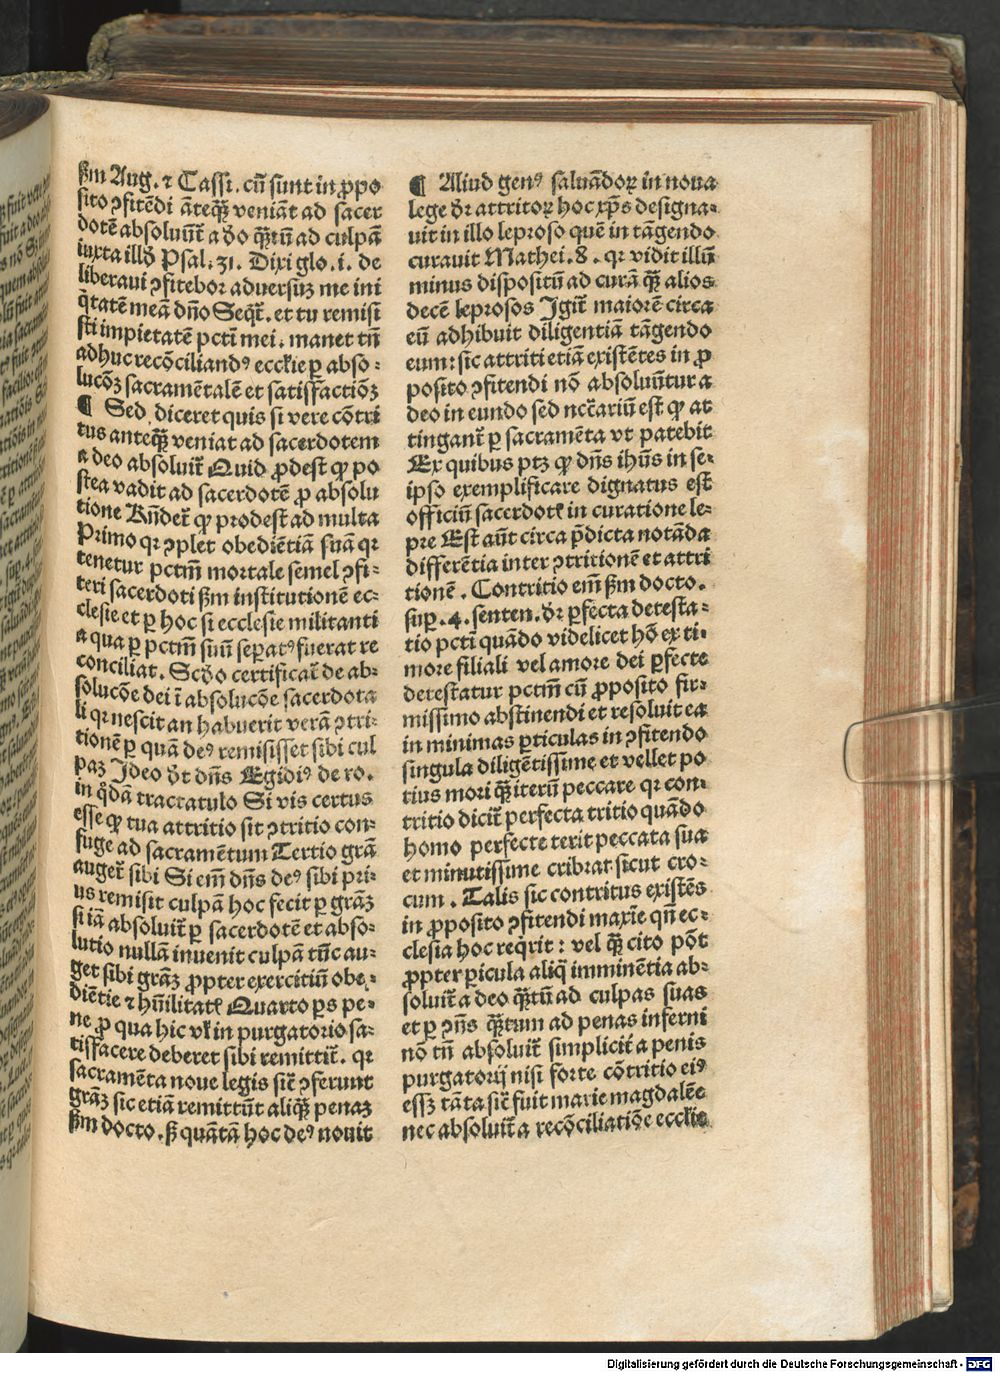 ẜm Aug. ⁊ Cassi. cū sunt in ꝓpo
sito ꝯfitēdi āteqꝫ̄ veniāt ad sacer
dotē absoluūt̄ a dō qꝫ̄tū ad culpā
iuxta illd̄ Psal. 31. Dixi glo. i. de
liberaui ꝯfitebor adversuꝫ me ini
q̄tatē meā dn̄o Seqt̄. et tu remisi
sti impietatē pcti mei. manet tn̄
adhuc recōciliandꝰ eccl̄ie ꝑ abso⸗
lucōꝫ sacramētalē et satisfactiōꝫ
¶ Sed diceret quis si vere cōtri
tus anteqꝫ̄ veniat ad sacerdotem
a deo absoluit̄ Quid ꝓdest ꝙ po
stea vadit ad sacerdotē ꝓ absolu
tione Rn̄det̄ ꝙ prodest ad multa
Primo qꝛ ꝯplet obediētiā suā qꝛ
tenetur pctm̄ mortale semel ꝯfi⸗
teri sacerdoti ẜm institutionē ec⸗
clesie et ꝑ hoc si ecclesie militanti
a qua ꝑ pctm̄ suū seꝑatꝰ fuerat re
conciliat̄. Scd̄o certificat̄ de ab⸗
solucōe dei ī absolucōe sacerdota
li qꝛ nescit an habuerit verā ꝯtri⸗
tionē ꝑ quā deꝰ remisisset sibi cul
paꝫ Jdeo dt̄ dn̄s Egidiꝰ de ro.
in qd̄ā tractatulo Si vis certus
esse ꝙ tua attritio sit ꝯtritio con⸗
fuge ad sacramētum Tertio grā
auget̄ sibi Si em̄ dn̄s deꝰ sibi pri⸗
us remisit culpā hoc fecit ꝑ grāꝫ
si iā absoluit̄ ꝑ sacerdotē et abso⸗
lutio nullā invenit culpā tūc au⸗
get sibi grāꝫ ꝓpter exercitiū obe⸗
diētie ⁊ hūilitatꝭ Quarto ꝑs pe⸗
ne ꝓ qua hic vl̄ in purgatorio sa⸗
tisfacere deberet sibi remittit̄. qꝛ
sacramēta noue legis sic̄ ꝯferunt
grāꝫ sic etiā remittūt aliqꝫ̄ penaꝫ
ẜm docto. ẜꝫ quātā hoc deꝰ nouit
¶ Aliud genꝰ saluādoꝝ in noua
lege dr̄ attritoꝝ hoc xp̄s designa⸗
uit in illo leproso quē in tāgendo
curauit Mathei. 8. qꝛ vidit illū
minus dispositū ad curā qꝫ̄ alios
decē leprosos Jgit̄ maiorē circa
eū adhibuit diligentiā tāgendo
eum: sic attriti etiā existētes in ꝓ
posito ꝯfitendi nō absoluūtur a
deo in eundo sed nc̄cariū est ꝙ at
tingant̄ ꝑ sacramēta vt patebit
Ex quibus ptꝫ ꝙ dn̄s ihūs in se⸗
ipso exemplificare dignatus est
officiū sacerdotꝭ in curatione le⸗
pre Est aūt circa p̄dicta notāda
differētia inter ꝯtritionē et attri
tionē. Contritio em̄ ẜm docto.
suꝑ. 4. senten. dr̄ ꝑfecta detesta⸗
tio pcti quādo videlicet hō ex ti⸗
more filiali vel amore dei ꝑfecte
detestatur pctm̄ cū ꝓposito fir⸗
missimo abstinendi et resoluit ea
in minimas ꝑticulas in ꝯfitendo
singula diligētissime et vellet po
tius mori qꝫ̄ iterū peccare qꝛ con⸗
tritio dicit̄ perfecta tritio quādo
homo perfecte terit peccata sua
et minutissime cribrat sicut cro⸗
cum. Talis sic contritus existēs
in ꝓposito ꝯfitendi maxīe qn̄ ec⸗
clesia hoc reqrit: vel qꝫ̄ cito pōt
ꝓpter ꝑicula aliq̄ imminētia ab⸗
soluit̄ a deo qꝫ̄tū ad culpas suas
et ꝑ ꝯn̄s qꝫ̄tum ad penas inferni
nō tn̄ absoluit̄ simplicit̄ a penis
purgatorij nisi forte cōtritio eiꝰ
essꝫ tāta sic̄ fuit marie magdalēe
nec absoluit̄ a recōciliatiōe eccl̄ie
Digitalisierung gefördert durch die Deutsche Forschungsgemeinschaft - DFG